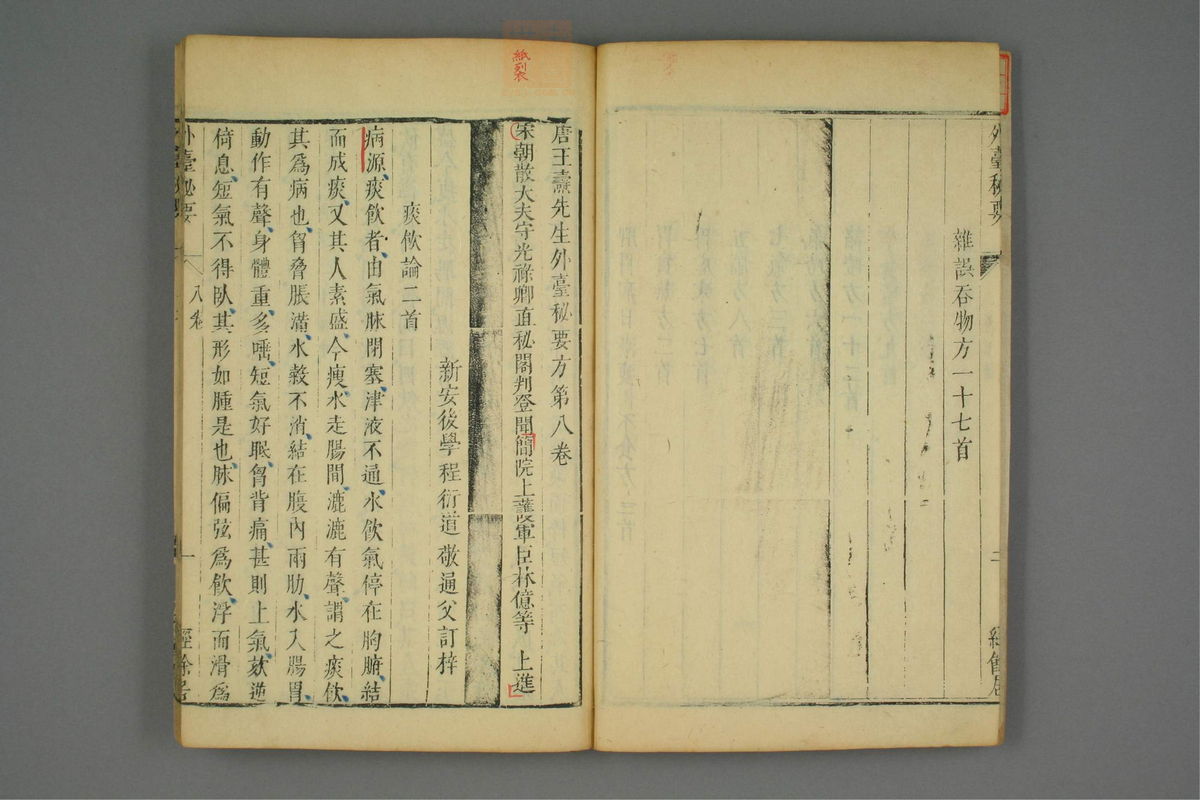 外臺秘要
雜誤吞物方一十七首
二
經餘居
唐王燾先生外臺秘要方第八卷
宋朝散大夫守光祿卿直秘閣判登聞簡院上護軍臣林億等 上進
新安後學程衍道敬通父訂梓
痰飲論二首
病源痰飲者由氣脉閉塞津液不通水飲氣停在胸腑結
而成痰又其人素盛今瘦水走腸間漉漉有聲謂之痰飲
其爲病也胷脅脹滿水穀不消結在腹內兩肋水入腸胃
動作有聲身體重多唾短氣好眠胷背痛甚則上氣欬逆
倚息短氣不得臥其形如腫是也脉偏弦爲飲浮而滑爲
外臺秘要
八卷
一
經餘居
紙列衣